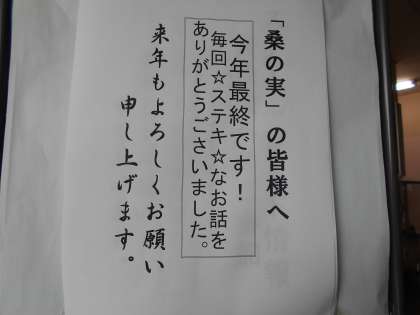 「桑の実」の皆様へ
今年最終です！
毎回☆ステキ☆なお話を
ありがとうございました。
来年もよろしくお願い
申し上げます。